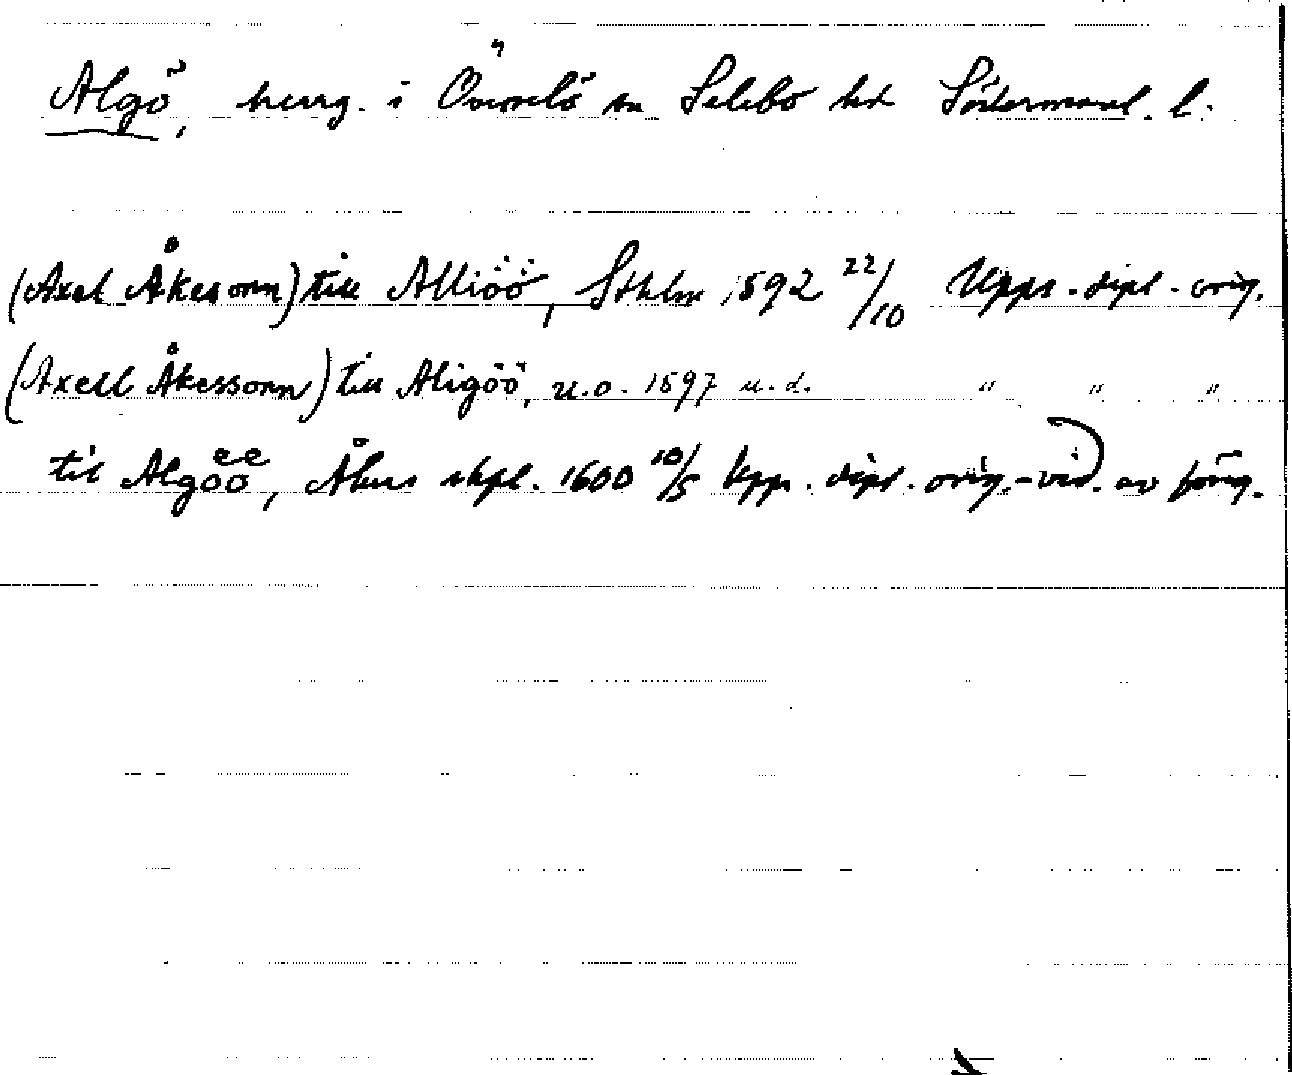 Algö, herrg. i Överselö sn Selebo hd Södermanl. l.
(Axel Åkesonn) till Alliöö, Sthlm 1592 22/10 Upps. dipl. orig.
(Axell Åkessonn) till Aligöö, u.o. 1597 u.d. " " "
til Algöö, Åkers skpl. 1600 10/5 Upp. dipl. orig.-vid. av förg.